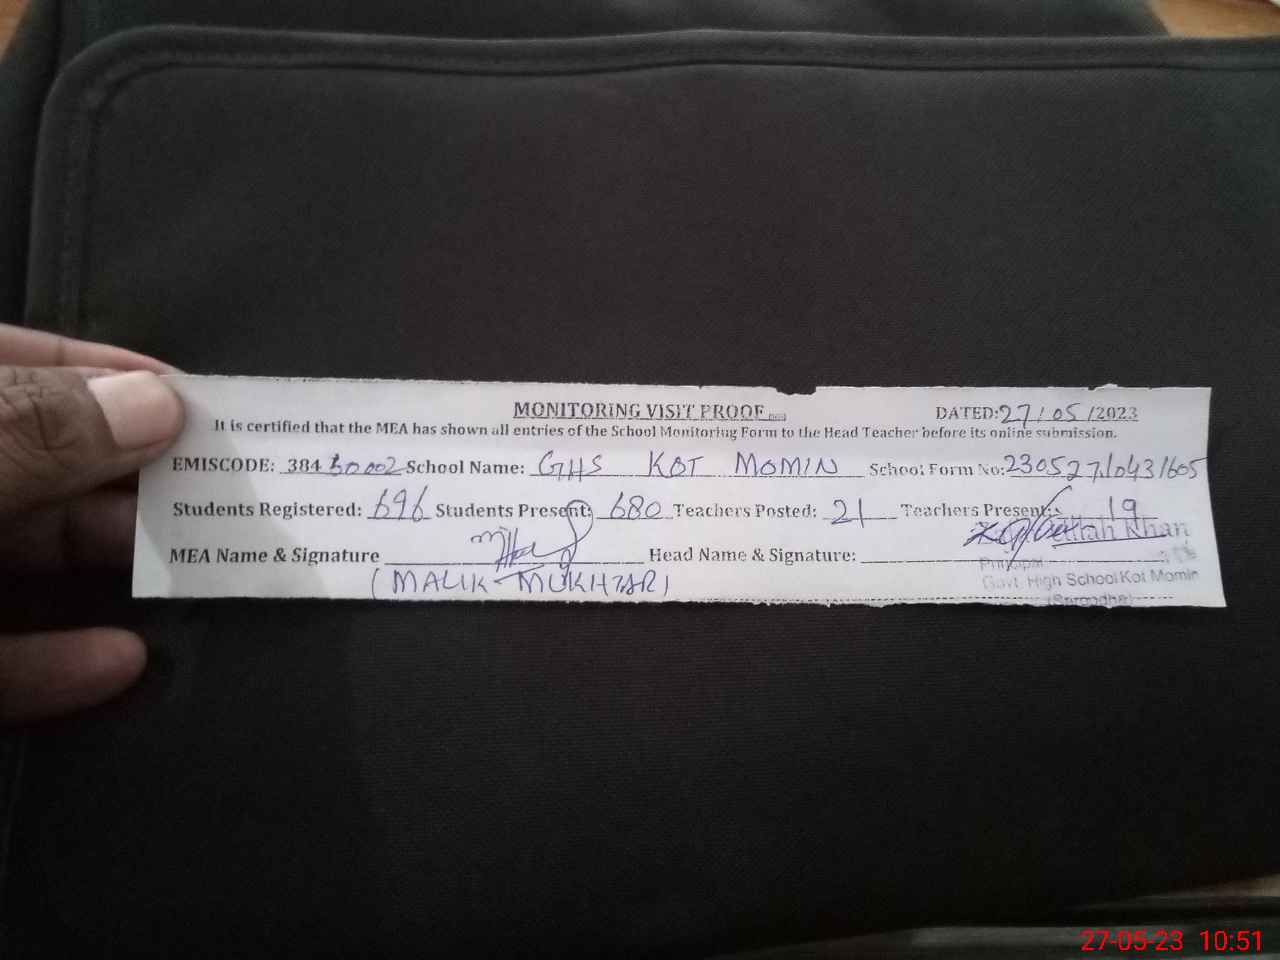 MONITORING VISIT PROOF
DATED: 27/05/2023
It is certified that the MEA has shown all entries of the School Monitoring Form to the Head Teacher before its online submission.
EMISCODE: 38450002 School Name: GHS KOT MOMIN School Form No: 230527
Students Registered: 696 Students Present: 680 Teachers Posted: 21 Teachers Present: 19
MEA Name & Signature Head Name & Signature: Khan
(MALIK MUKHTAR)
Principal
Govt. High School Kot Momin
(Sargodha)
27-05-23 10:51